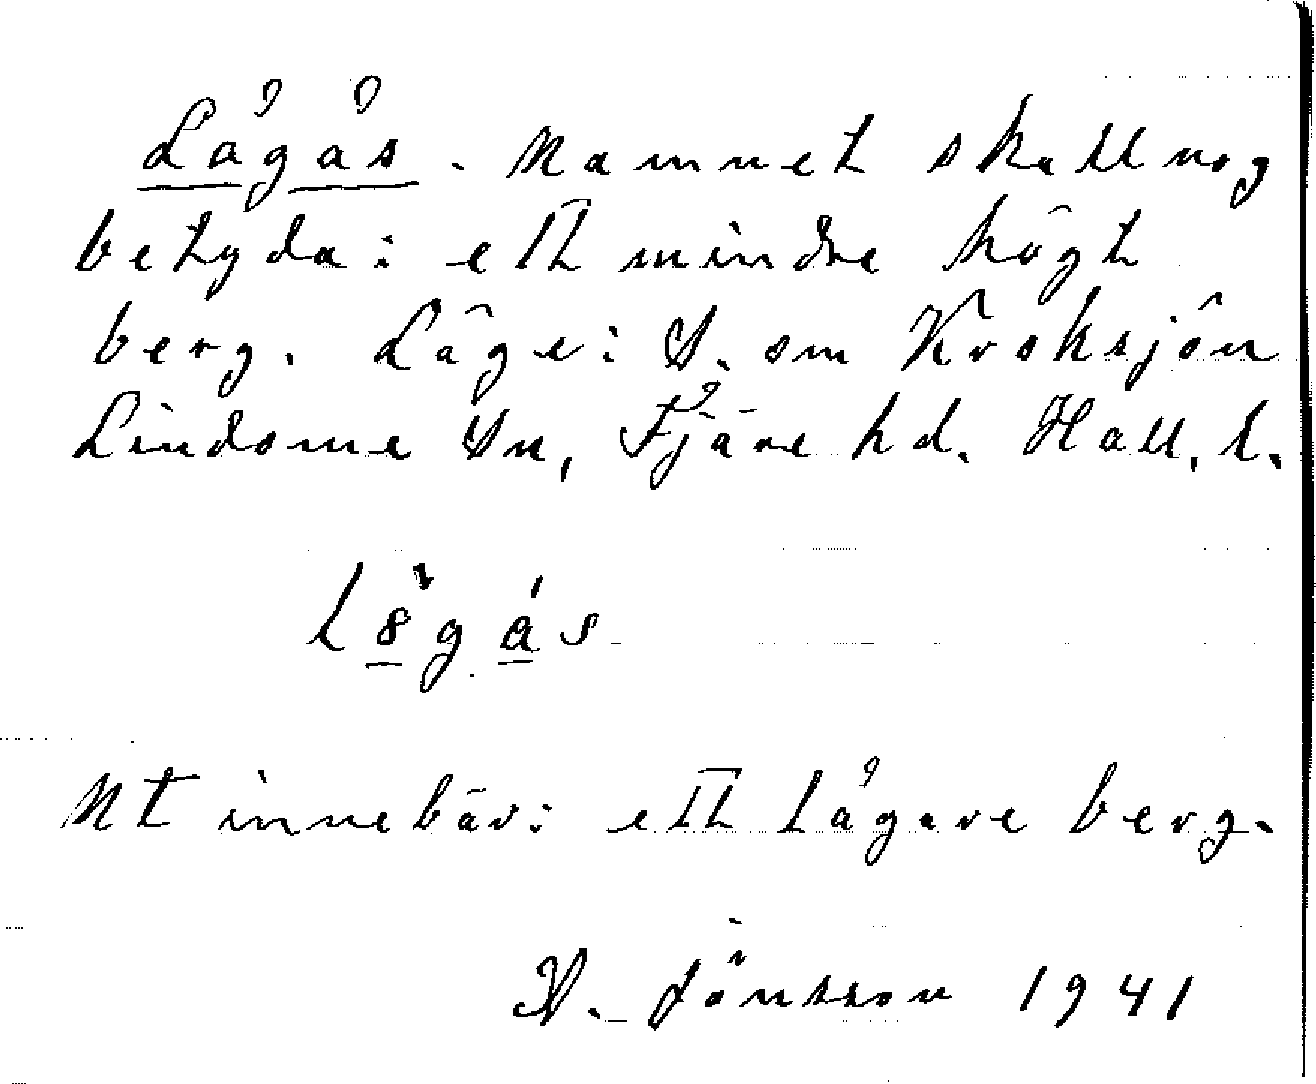 Lågås. Namnet skall nog
betyda: ett mindre högt
berg. Läge: S. om Kroksjön
Lindome Sn, Fjäre hd. Hall. l.
l8̀gás
Nt innebär: ett lågare berg.
Jönsson 1941